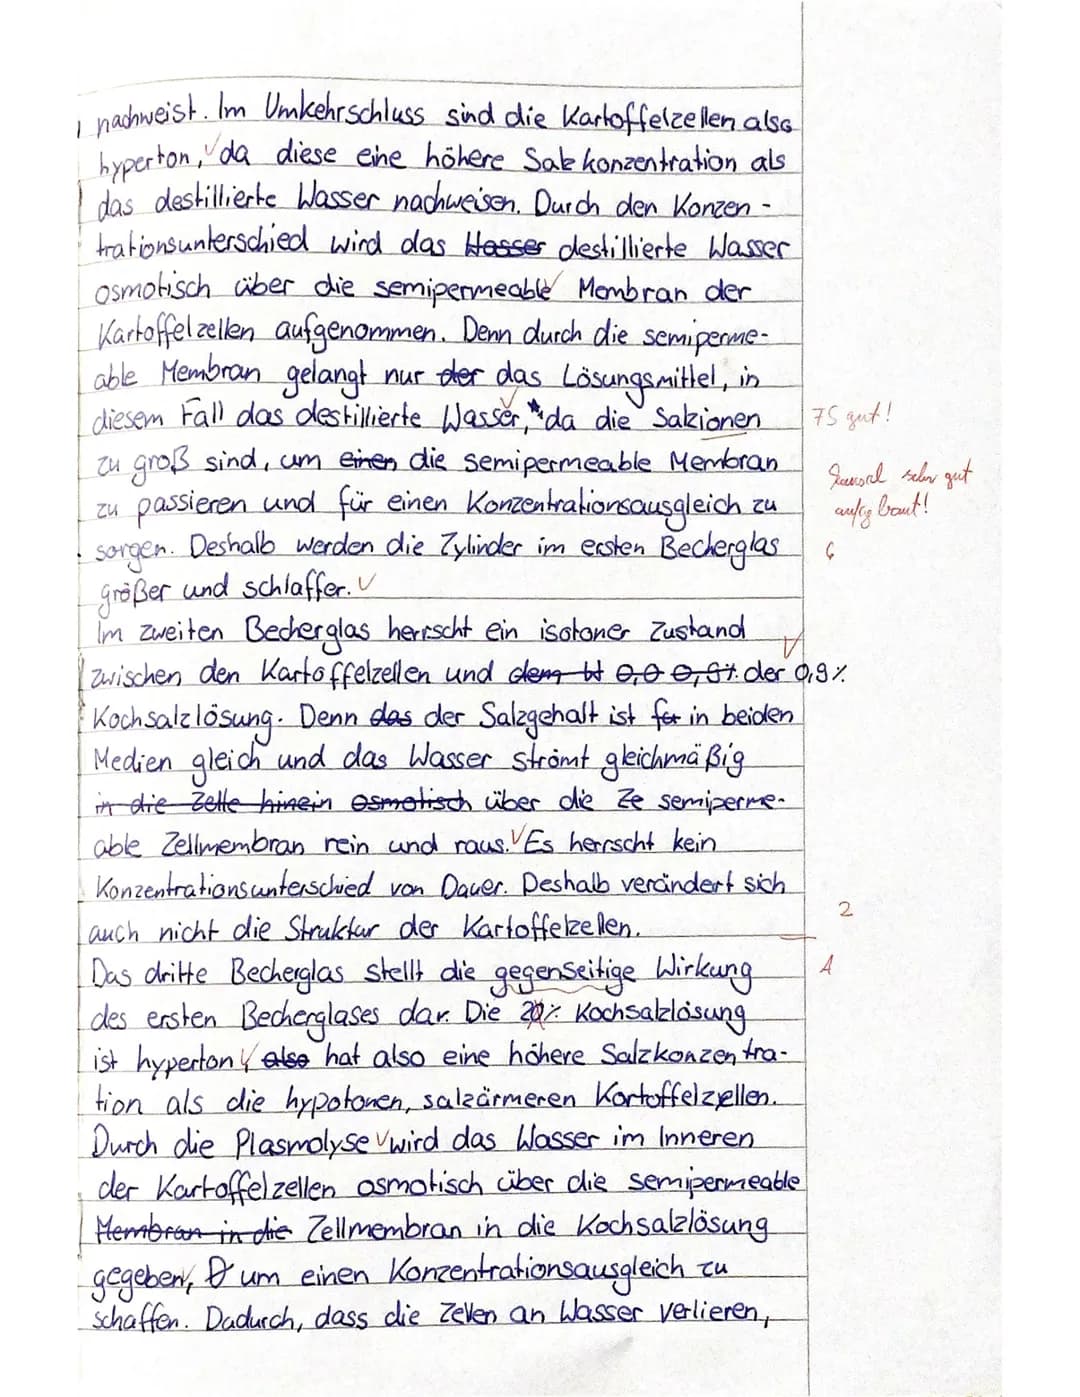 nachweist. Im Umkehrschluss sind die Kartoffelzellen also
hyperton, da diese eine höhere Salzkonzentration als
das destillierte Wasser nachweisen. Durch den Konzen-
trationsunterschied wird das Wasser destillierte Wasser
osmotisch über die semipermeable Membran der
Kartoffelzellen aufgenommen. Denn durch die semiperme-
able Membran gelangt nur der das Lösungsmittel, in
diesem Fall das destillierte Wasser,* da die Salzionen
75 gut!
zu groß sind, um einen die semipermeable Membran
sehr gut
zu passieren und für einen Konzentrationsausgleich zu
aufgebaut!
sorgen. Deshalb werden die Zylinder im ersten Becherglas
6
größer und schlaffer.
Im zweiten Becherglas herrscht ein isotoner Zustand
zwischen den Kartoffelzellen und dem 0,0 0,9% der 0,9%
Kochsalzlösung. Denn das der Salzgehalt ist in beiden
Medien gleich und das Wasser strömt gleichmäßig
in die Zelle hinein osmotisch über die Ze semiperme-
able Zellmembran rein und raus. Es herrscht kein
Konzentrationsunterschied von Dauer. Deshalb verändert sich
2
auch nicht die Struktur der Kartoffelzellen.
Das dritte Becherglas stellt die gegenseitige Wirkung
A
des ersten Becherglases dar. Die 20% Kochsalzlösung
ist hyperton also hat also eine höhere Salzkonzentra-
tion als die hypotonen, salzärmeren Kartoffelzellen.
Durch die Plasmolyse wird das Wasser im Inneren
der Kartoffelzellen osmotisch über die semipermeable
Membran in die Zellmembran in die Kochsalzlösung
gegeben, um einen Konzentrationsausgleich zu
schaffen. Dadurch, dass die Zellen an Wasser verlieren,